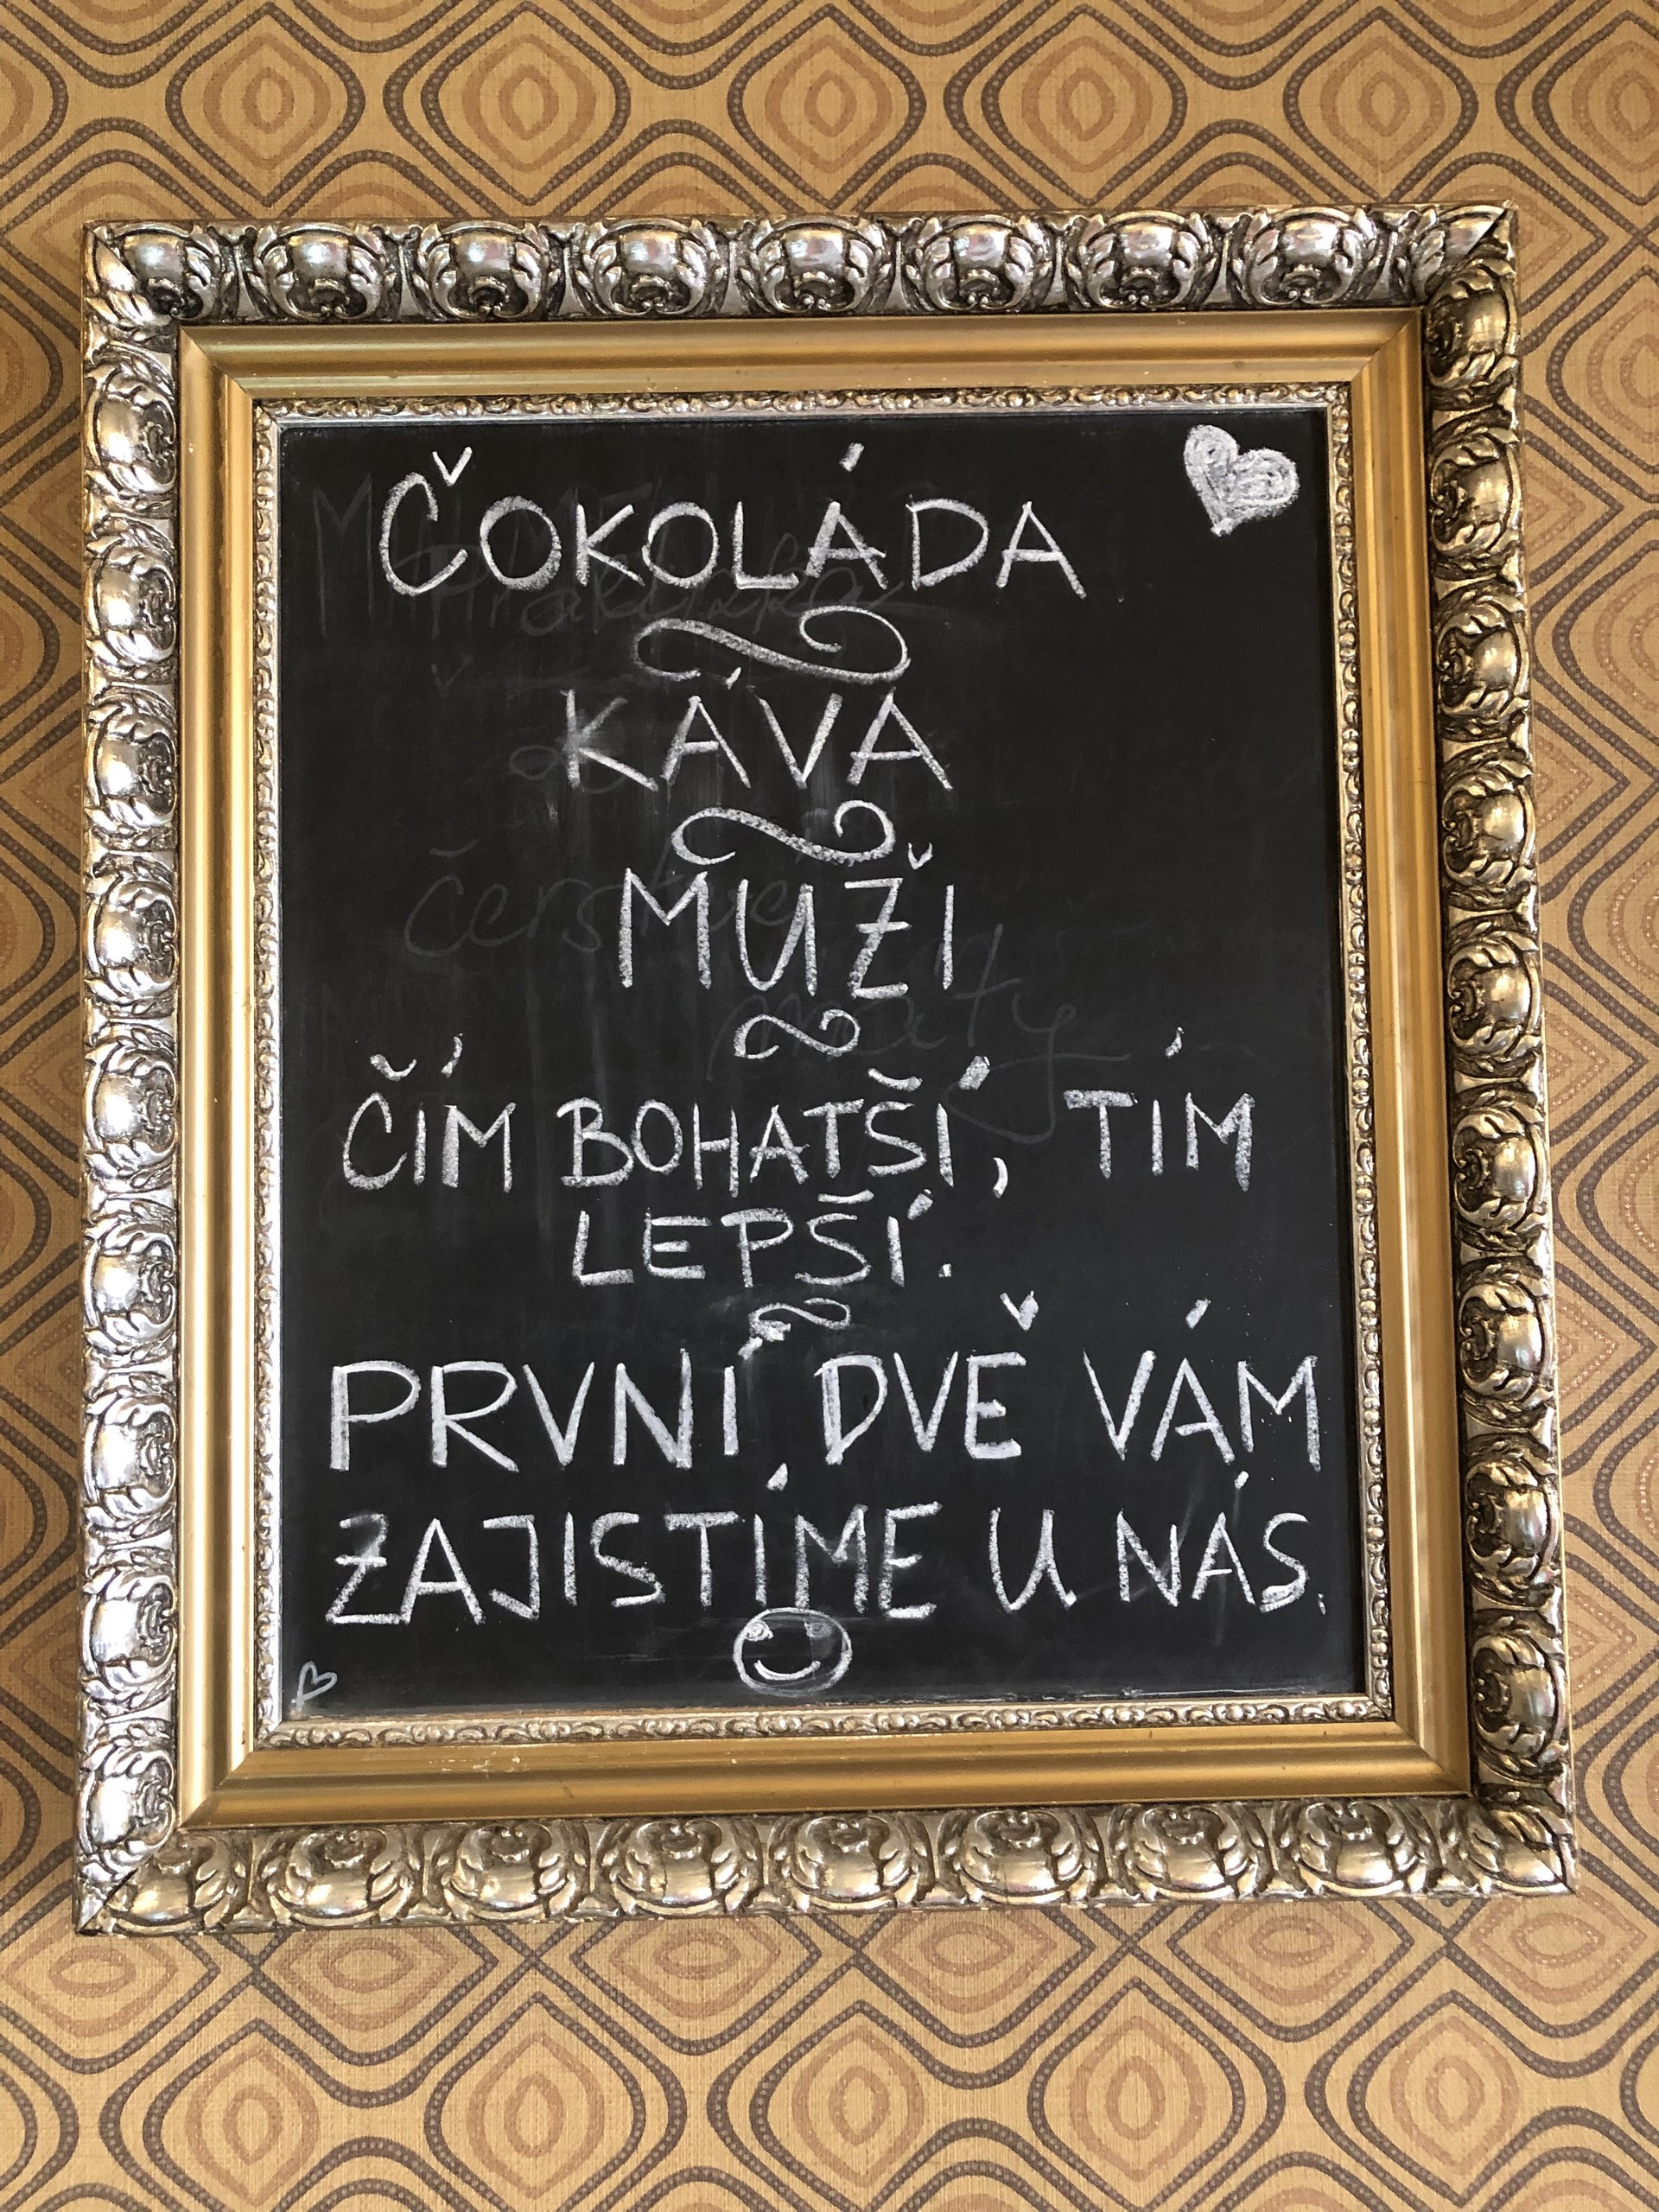 ČOKOLÁDA
KÁVA
MUŽI
ČÍM BOHATŠÍ, TÍM
LEPŠÍ.
PRVNÍ DVĚ VÁM
ZAJISTÍME U NÁS.